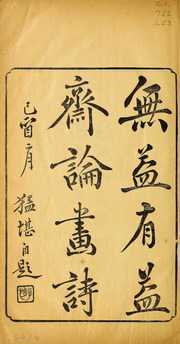 無益有益
齋論畫詩
己酉
猛堪自題